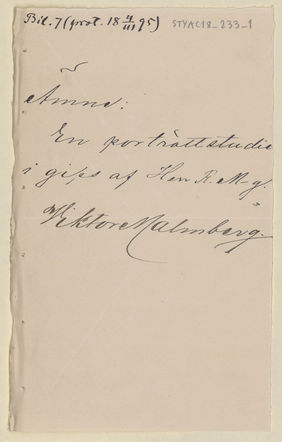 Bil. 7 (prot. 18 4/III 95) STYAC18_233_1
Ämne:
En porträttstudie
i gips af Herr R. M-g.
Viktor Malmberg.